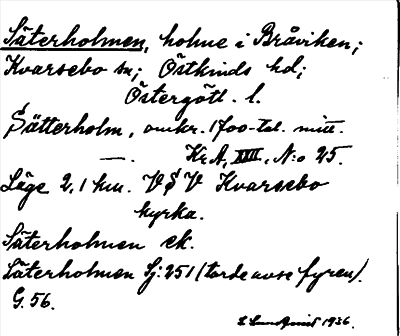 Säterholmen, holme i Bråviken;
Kvarsebo sn; Östkinds hd;
Östergötl. l.
Sätterholm, omkr. 1700-tal. mitt.
—. Kr. A, XXIII, N:o 25.
Läge 2,1 km. VSV Kvarsebo
kyrka.
Säterholmen ek.
Säterholmen Sj: 251 (torde avse fyren).
G. 56.
1936.